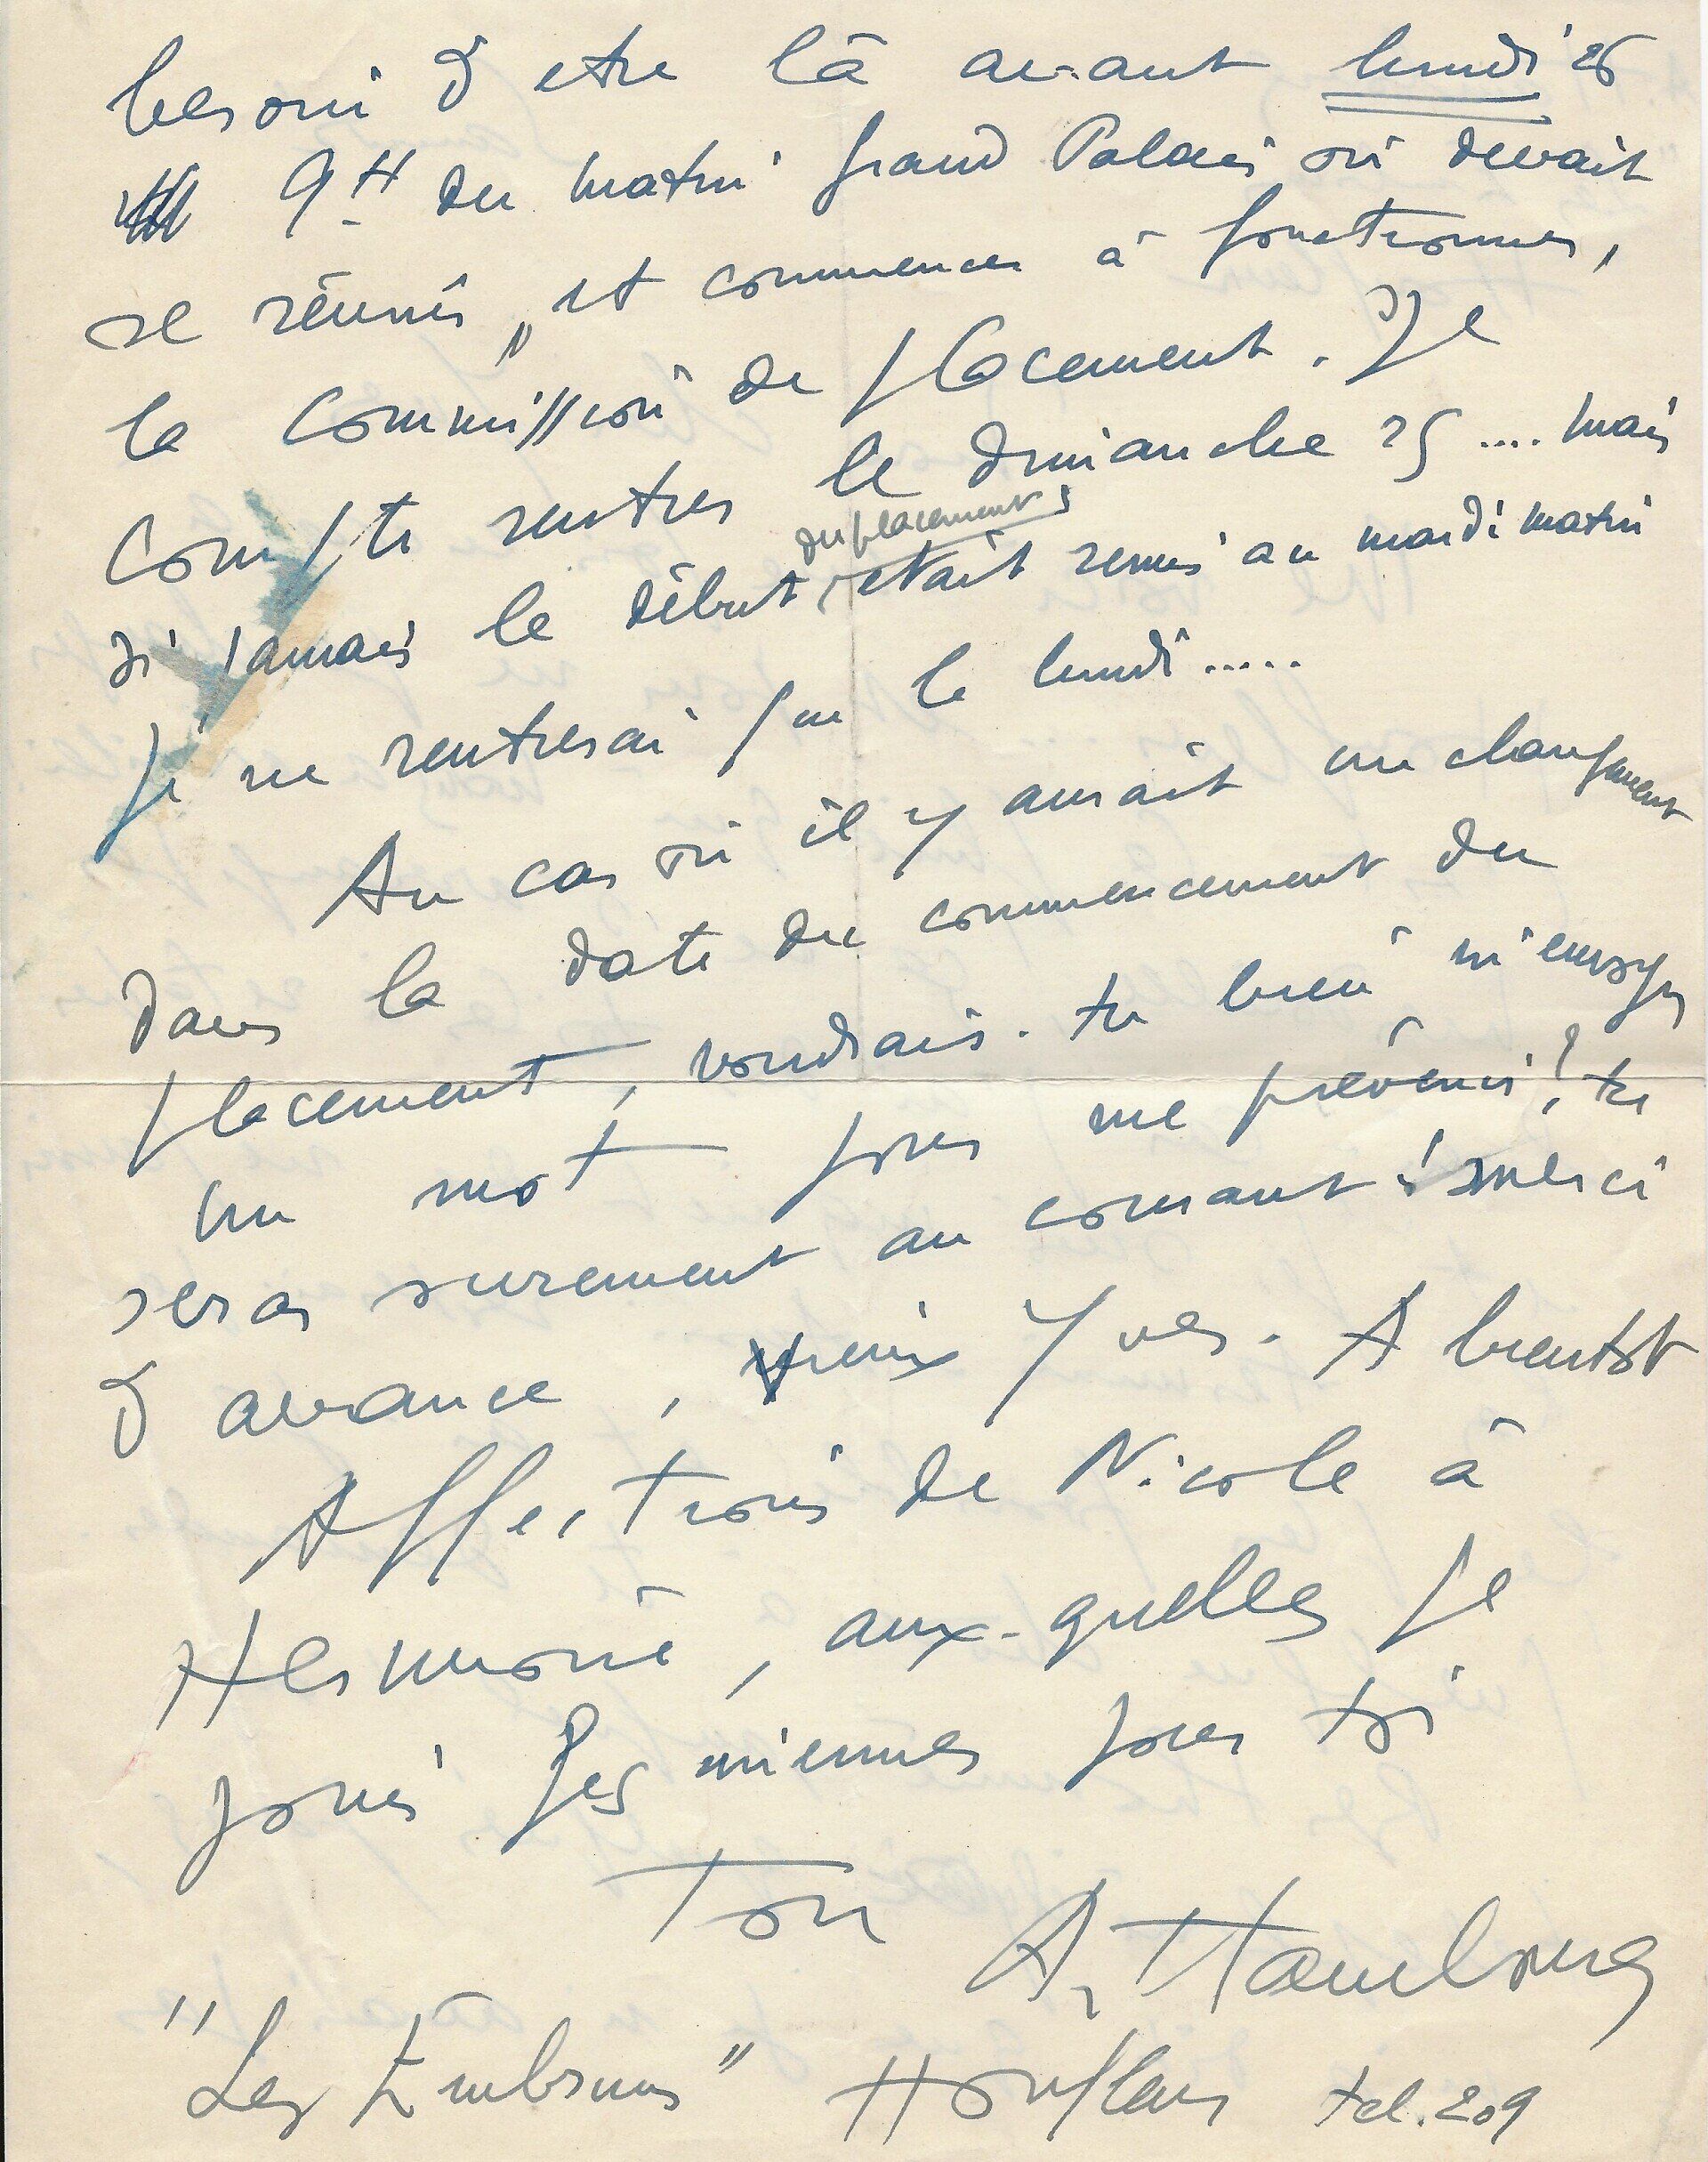 besoin d'etre là avant lundi 26
9H du matin Grand Palais où devait
se réunir, et commencer à fonctionner,
la Commission de placement. Je
compte rentrer le dimanche 25 .... mais
du placement
si jamais le début était remis au mardi matin
je ne rentrerai que le lundi .....
Au cas où il y aurait un changement
dans la date du commencement du
placement, voudrais-tu bien m'envoyer
un mot pour me prévenir, tu
seras surement au courant! merci
d'avance, vieux Yves. A bientot
Affections de Nicole à
Hermione, aux-quelles je
joins les miennes pour toi
Ton
A. Hambourg
"Les Embruns" Honfleur tel. 209